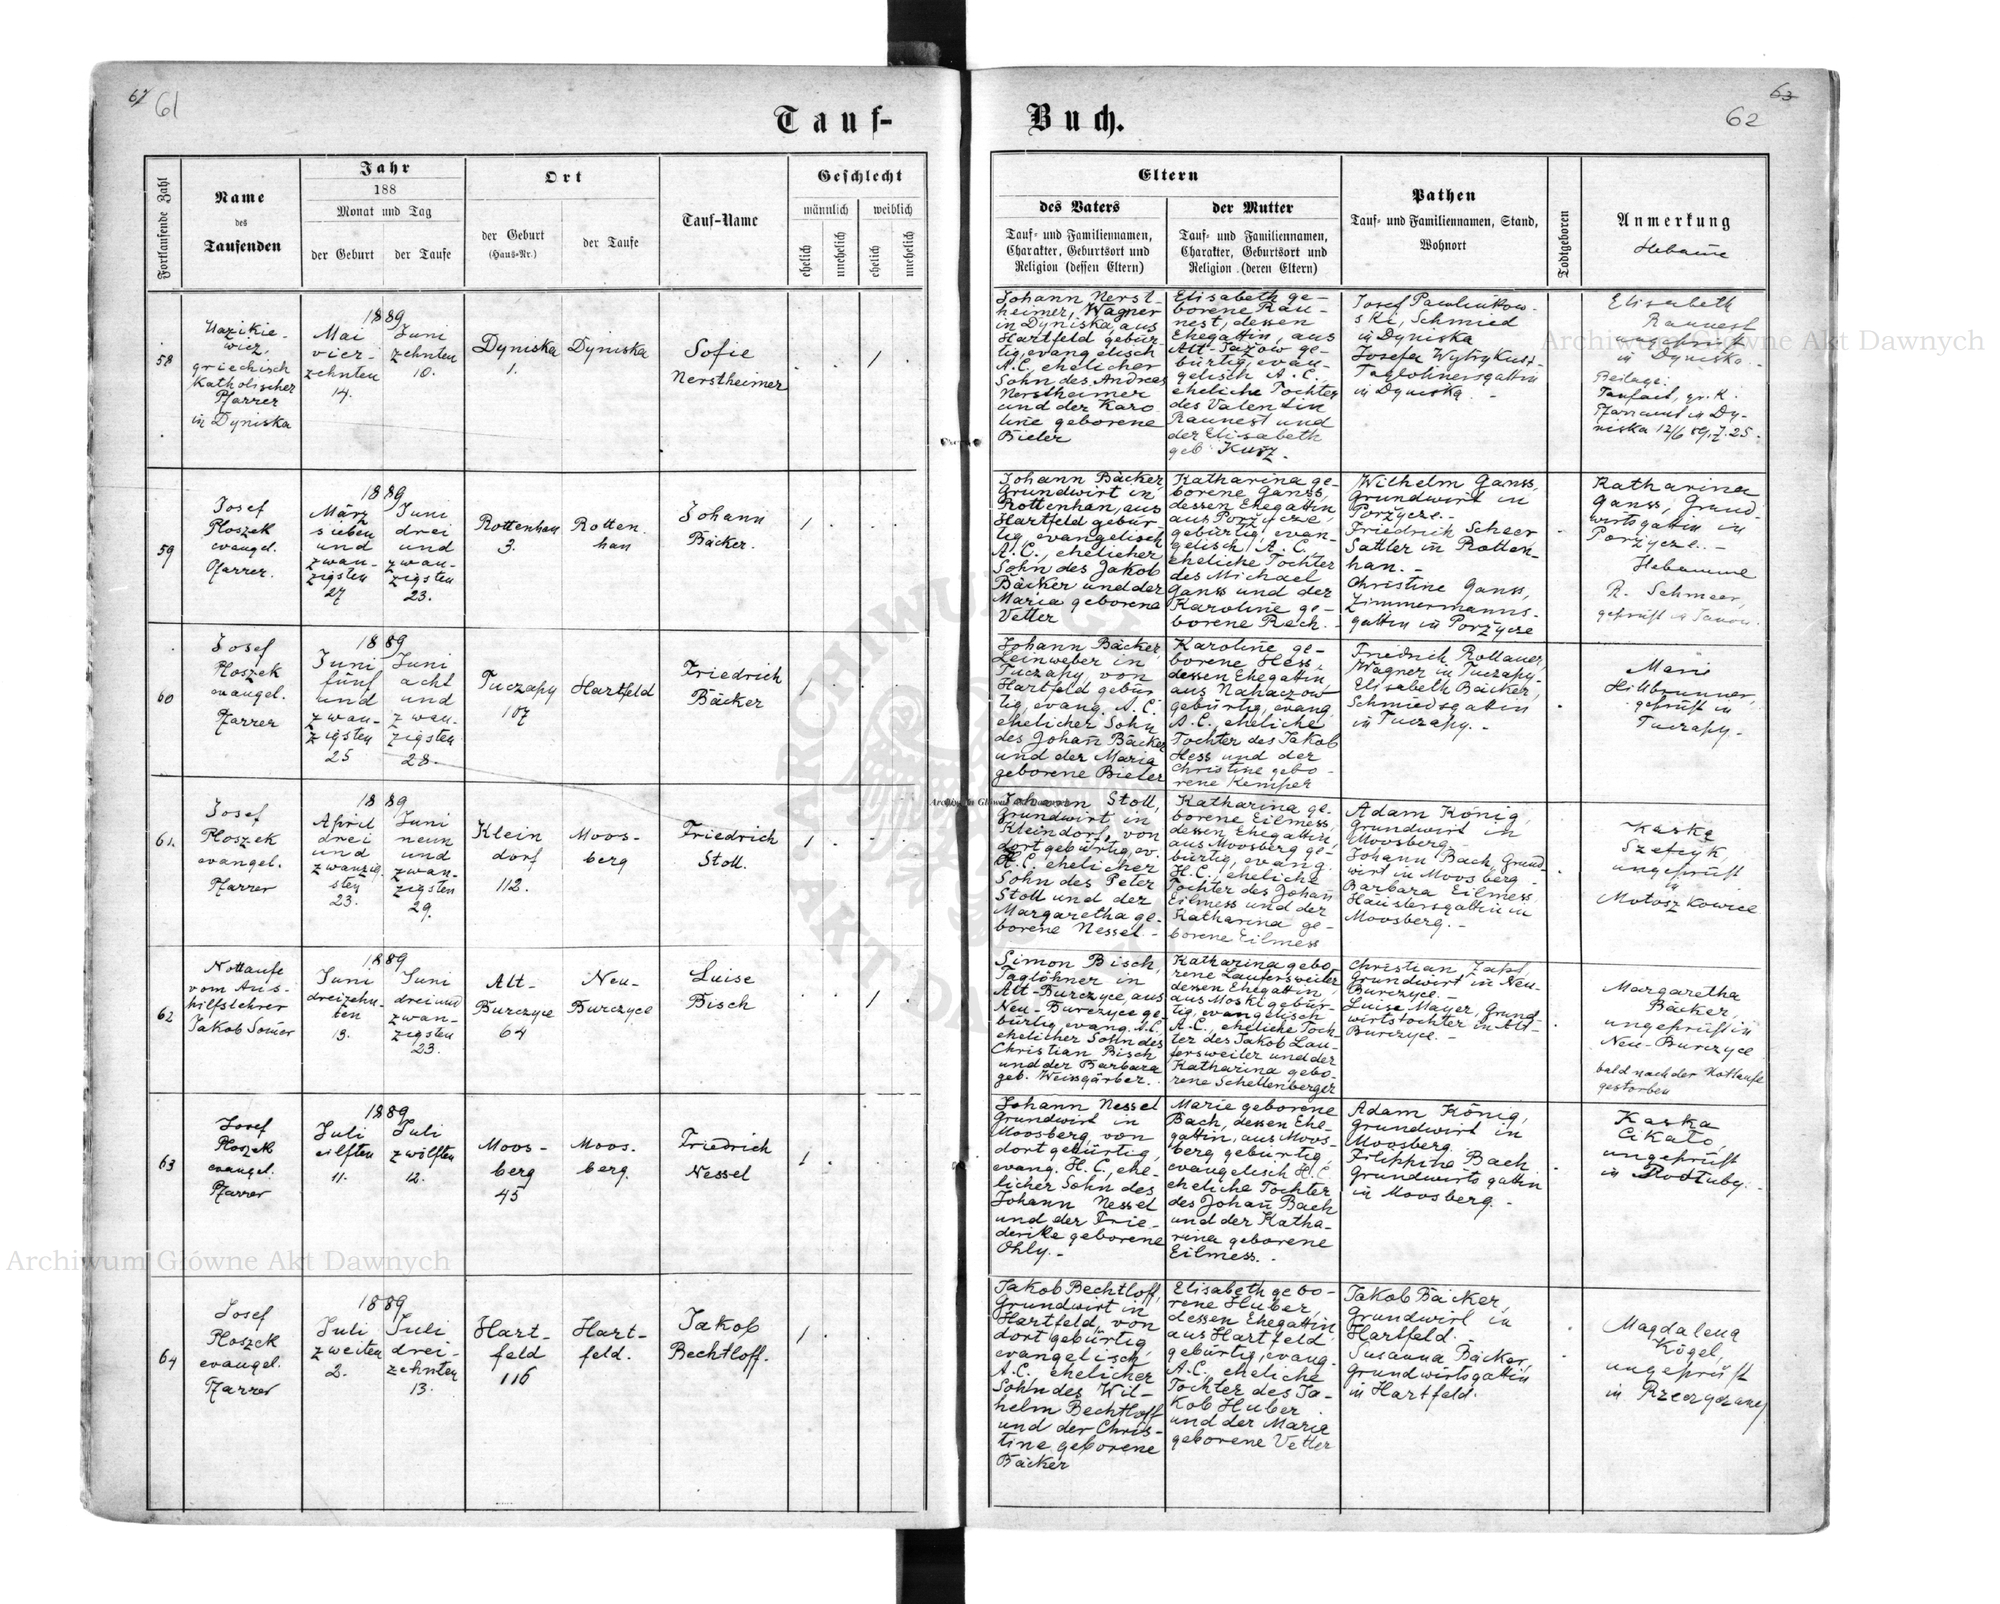 61
Tauf-
Buch.
63
62
Fortlaufende Zahl
Name
des
Taufenden
Jahr
188
Monat und Tag
der Geburt
der Taufe
Ort
der Geburt
(Haus-Nr.)
der Taufe
Tauf-Name
Geschlecht
männlich
weiblich
ehelich
unehelich
ehelich
unehelich
Eltern
des Vaters
Tauf- und Familiennamen,
Charakter, Geburtsort und
Religion (dessen Eltern)
der Mutter
Tauf- und Familiennamen,
Charakter, Geburtsort und
Religion (deren Eltern)
Pathen
Tauf- und Familiennamen, Stand,
Wohnort
Todtgeboren
Anmerkung
Hebame
58
griechisch
katholischer
Pfarrer
in Dyniska
1889
Mai
vier-
zehnten
14.
Juni
zehnten
10.
Dyniska
1.
Dyniska
Sofie
Nerstheimer
1
Johann Nerst-
heimer, Wagner
in Dyniska, aus
Hartfeld gebür-
tig, evangelisch
A.C., ehelicher
Sohn des Andreas
Nerstheimer
und der Karo
line geborene
Bieler
Elisabeth ge-
borene Rau-
nest, dessen
Ehegattin, aus
Alt-Jażow ge-
bürtig, evan-
gelisch A.C.
eheliche Tochter
des Valentin
Raunest und
der Elisabeth
geb. Kurz.
Josef Pawlikow-
ski, Schmied
in Dyniska
Josefa
Taglöhnersgattin
in Dyniska.
Elisabeth
Raunest
ungeprüft
in Dyniska.
Beilage:
Taufact, gr. K.
Pfarramt in Dy-
niska 12/6 89, Z. 25.
59
Josef
Ploszek
evangel.
Pfarrer.
1889
März
sieben
und
zwan-
zigsten
27
Juni
drei
und
zwan-
zigsten
23.
Rottenhan
3.
Rotten
han
Johann
Bäcker.
1
Johann Bäcker
Grundwirt in
Rottenhan, aus
Hartfeld gebür-
tig, evangelisch
A.C., ehelicher
Sohn des Jakob
Bäcker und der
Maria geborene
Vetter
Katharina ge-
borene Ganss,
dessen Ehegattin
aus Porzycze,
gebürtig, evan-
gelisch, A.C.,
eheliche Tochter
des Michael
Ganss und der
Karoline ge-
borene Rech.
Wilhelm Ganss
Grundwirt in
Porzycze.-
Friedrich Scheer
Sattler in Rotten-
han.-
Christine Ganss,
Zimmermanns-
gattin in Porzycze
Katharina
Ganss, Grund-
wirtsgattin in
Porzycze.-
Hebamme
R. Schmeer,
geprüft in Janow.
60
Josef
Ploszek
evangel.
Pfarrer
1889
Juni
fünf
und
zwan-
zigsten
25
Juni
acht
und
zwan-
zigsten
28.
Tuczapy
107
Hartfeld
Friedrich
Bäcker
1
Johann Bäcker,
Leinweber in
Tuczapy, von
Hartfeld gebür
tig, evang. A.C.
ehelicher Sohn
des Johan̄ Bäcker
und der Maria
geborene Bieler
Karoline ge-
borene Hess,
dessen Ehegattin,
aus Nahaczow
gebürtig, evang
A.C., eheliche
Tochter des Jakob
Hess und der
Christine gebo-
rene Kemper
Friedrich Rollauer,
Wagner in Tuczapy.
Elisabeth Bäcker,
Schmiedsgattin
in Tuczapy.-
Marie
Hillbrunner,
geprüft in
Tuczapy-
61.
Josef
Ploszek
evangel.
Pfarrer
1889
April
drei
und
zwanzig-
sten
23.
Juni
neun
und
zwan-
zigsten
29.
Klein
dorf
112.
Moos-
berg
Friedrich
Stoll.
1
Johann Stoll,
Grundwirt in
Kleindorf, von
dort gebürtig, ev.
H.C. ehelicher
Sohn des Peter
Stoll und der
Margaretha ge-
borene Nessel.-
Katharina ge-
borene Eilmess,
dessen Ehegattin,
aus Moosberg ge-
bürtig, evang.
H.C., eheliche
Tochter des Johan̄
Eilmess und der
Katharina ge-
borene Eilmess
Adam König,
Grundwirt in
Moosberg.
Johann Bach, Grund-
wirt in Moosberg.
Barbara Eilmess,
Häuslersgattin in
Moosberg.-
Kaska
Szefcyk,
ungeprüft
in
Motoszkowice
62
Nottaufe
vom Aus-
hilfslehrer
Jakob Som̄er
1889
Juni
dreizehn-
ten
13.
Juni
drei und
zwan-
zigsten
23.
Alt-
Burczyce
64
Neu-
Burczyce
Luise
Bisch
1
Simon Bisch,
Taglöhner in
Alt-Burczyce, aus
Neu-Burczyce ge-
bürtig, evang. A.C.
ehelicher Sohn des
Christian Bisch
und der Barbara
geb. Weissgärber.
Katharina gebo
rene Laufersweiler
dessen Ehegattin,
aus Moski gebür-
tig, evangelisch
A.C., eheliche Toch-
ter des Jakob Lau-
fersweiler und der
Katharina gebo-
rene Schellenberger
Christian Zapf,
Grundwirt in Neu-
Burczyce.-
Luise Mayer, Grund-
wirtstochter in Alt-
Burczyce.-
Margaretha
Bäcker,
ungeprüft in
Neu-Burczyce
bald nach der Nottaufe
gestorben
63
Josef
Ploszek
evangel.
Pfarrer
1889
Juli
eilften
11.
Juli
zwölften
12.
Moos-
berg
45
Moos.
berg.
Friedrich
Nessel
1
Johann Nessel
Grundwirt in
Moosberg, von
dort gebürtig,
evang. H.C., ehe-
licher Sohn des
Johann Nessel
und der Frie-
derike geborene
Ohly.-
Marie geborene
Bach, dessen Ehe-
gattin, aus Moos-
berg gebürtig,
evangelisch H.C.
eheliche Tochter
des Johan̄ Bach
und der Katha-
rina geborene
Eilmess.-
Adam König,
Grundwirt in
Moosberg.
Filippine Bach
Grundwirtsgattin
in Moosberg.-
Kaska
Cikało,
ungeprüft
in Rodłuby.
64
Josef
Ploszek
evangel.
Pfarrer
1889
Juli
zweiten
2.
Juli
drei-
zehnten
13.
Hart-
feld
116
Hart-
feld.
Jakob
Bechtloff.
1
Jakob Bechtloff,
Grundwirt in
Hartfeld, von
dort gebürtig,
evangelisch
A.C. ehelicher
Sohn des Wil-
helm Bechtloff
und der Chris-
tine geborene
Bäcker
Elisabeth gebo-
rene Huber,
dessen Ehegattin
aus Hartfeld
gebürtig, evang.
A.C., eheliche
Tochter des Ja-
kob Huber
und der Marie
geborene Vetter
Jakob Bäcker,
Grundwirt in
Hartfeld.-
Susanna Bäcker,
Grundwirtsgattin
in Hartfeld.
Magdalena
Kögel,
ungeprüft
in
Archiwum Główne Akt Dawnych
Archiwum Główne Akt Dawnych
Archiwum Główne Akt Dawnych